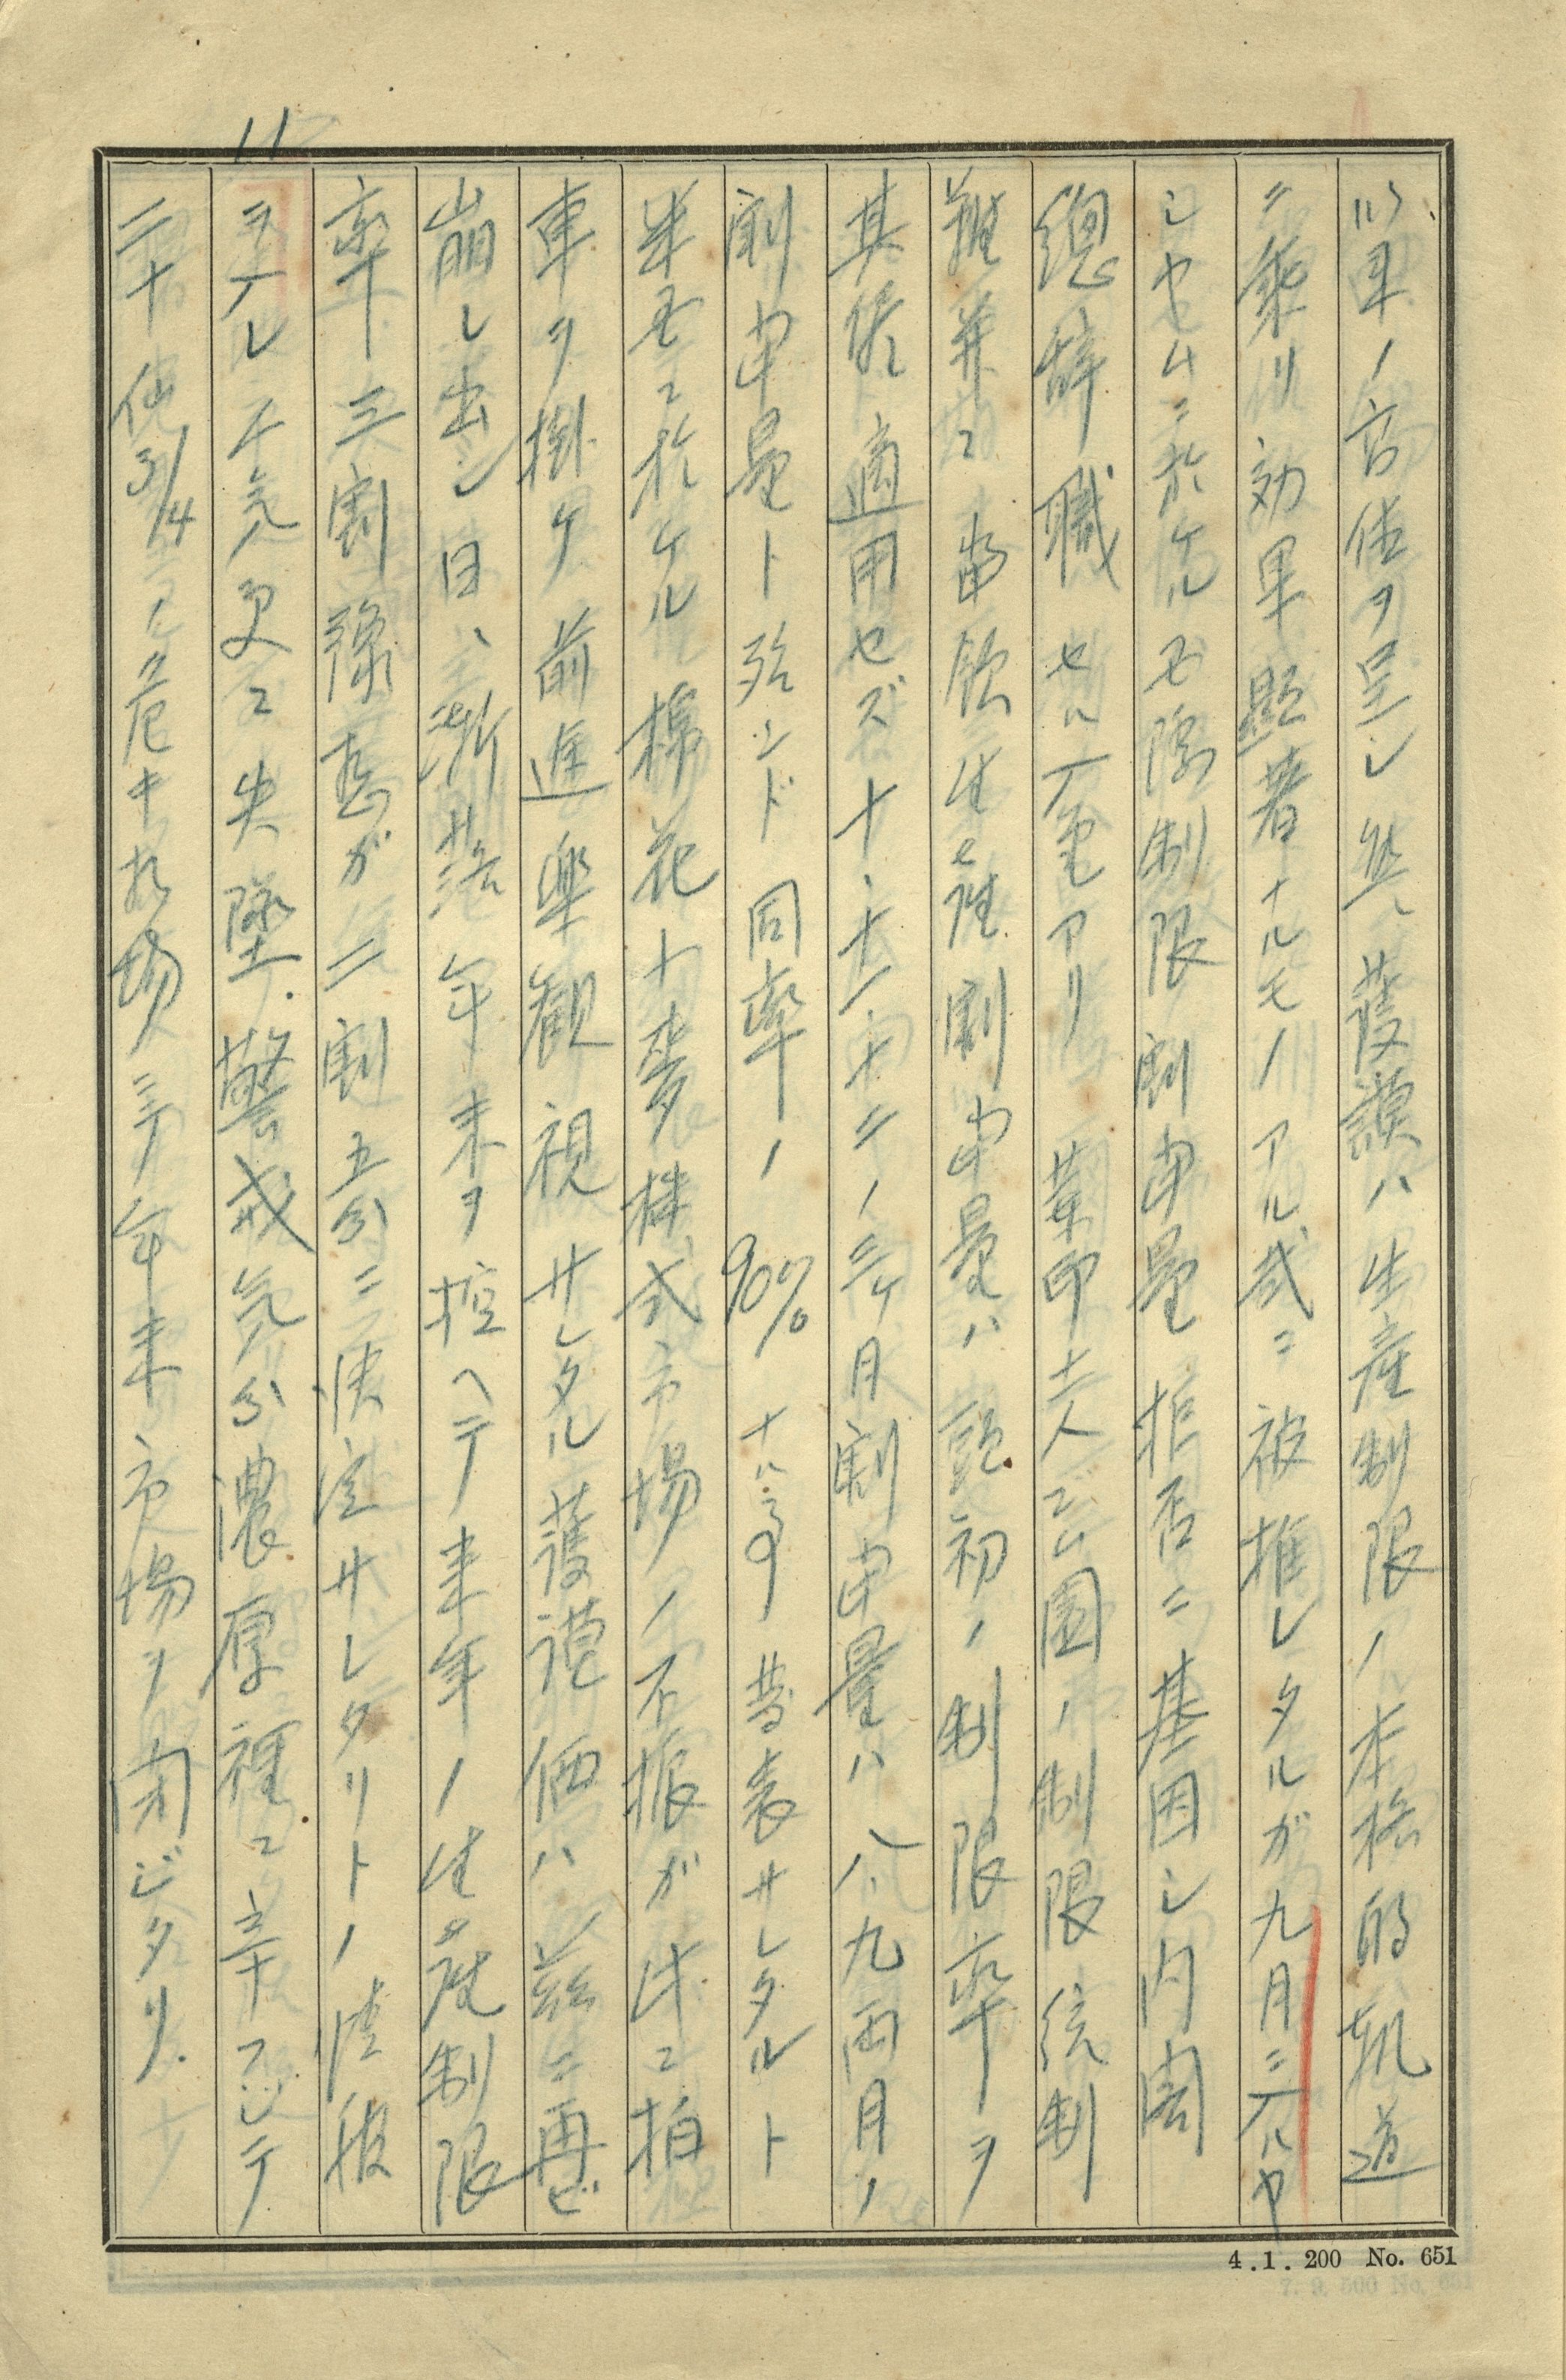 11
以来ノ高値ヲ呈シ 然、護謨ハ生産制限ノ本格的軌道
ニ乗リ効果顕著ナルモノアル式ニ被推レタルガ九月二入ルヤ
シヤムニ於ケル 制限割当量拒否ニ基因シ内閣
総辞職セルノ電アリ 蘭印土人ゴム園ノ制限統制
難並ニ 割当量ハ最初ノ制限率ヲ
其侭適用セズ十、十一、十二ノ三ケ月割当量ハ八、九両月ノ
割当量ト殆ンド同率ノ 90% 発表サレタルト
米国ニ於ケル棉花 株式市場ノ不振ガ 拍
車ヲ掛ケ前進楽観視サレタル護謨価ハ茲ニ再ビ
崩レ出シ日、漸落年末ヲ控ヘテ来年ノ生産制限
率三割 ガ二割五分ニ決定サレタリトノ情報
ヲ入レ人気更ニ失墜.警戒気分濃厚裡ニ辛フジテ
二十仙3/4 ノ危キ相場ニテ年末市場ヲ閉ジタリ.
4.1.200 No. 651